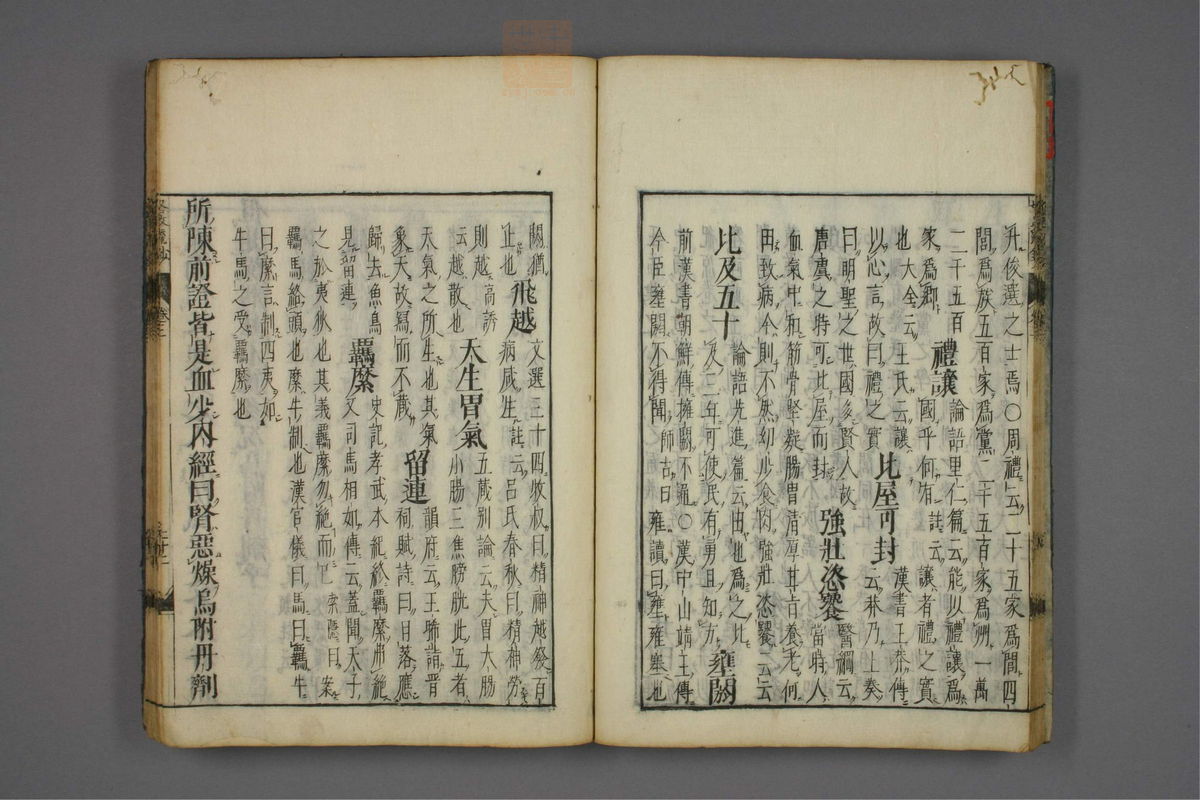 升俊選之士焉○周禮云二十五家爲閭四
閭爲族五百家爲黨二千五百家爲州一萬
二千五百
家爲鄉　禮讓　論語里仁篇云能以禮讓爲
國乎何有註云讓者禮之實
也大全云王氏云讓
以心言故曰禮之實　比屋可封　漢書王莽傳
云莽乃上奏
曰明聖之世國多賢人故
唐虞之時可比屋而封　強壯恣饕　醫綱云
當時人
血氣中和筋骨堅凝腸胃清厚甘旨養老何
由致病今則不然幼少食肉強壯恣饕云云
比及五十　論語先進篇云由也爲之比
及三年可使民有勇且知方　壅閼
前漢書朝鮮傳擁閼不通○漢中山靖王傳
今臣雍閼不得聞師古曰雍讀曰壅雍塞也
閼猶
止也　飛越　文選三十四枚叔曰精神越發百
病咸生註云呂氏春秋曰精神勞
則越高誘
云越散也　天生胃氣　五藏別論云夫胃大腸
小腸三焦膀胱此五者
天氣之所生也其氣
象天故寫而不藏　留連　韻府云王勝詣晋
祠賦詩曰日落應
歸去魚鳥
見留連　羈縻　史記孝武本紀終羈縻弗絶
又司馬相如傳云蓋聞天子
之於夷狄也其義羈縻勿絶而已索隱曰案
羈馬絡頭也縻牛制也漢官儀曰馬曰羈牛
曰縻言制四夷如
牛馬之受羈縻也
所陳前證皆是血少內經曰腎惡燥烏附丹劑